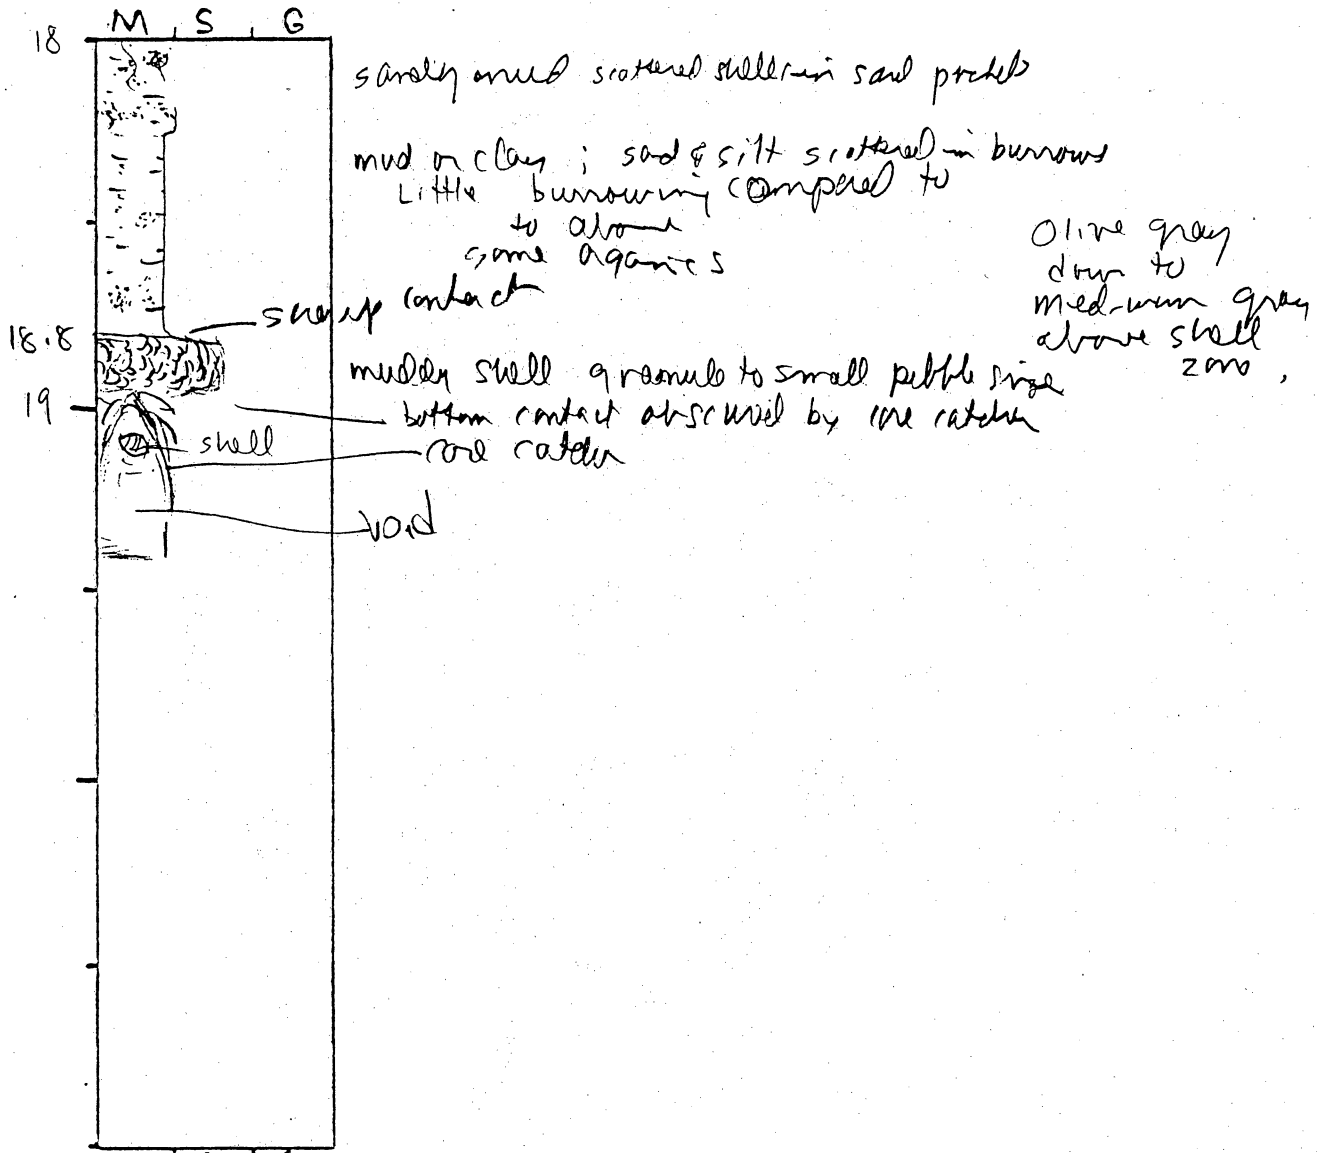 M S G
18
sandy mud scattered shells in sand pockets
mud or clay ; sad & silt scattered in burrows
Little burrowing compared to
to above
some organics
Olive gray
down to
medium gray
above shell
zone
sharp contact
18.8
muddy shell granule to small pebble size
19
bottom contact obscured by core catcher
shell
core catcher
void